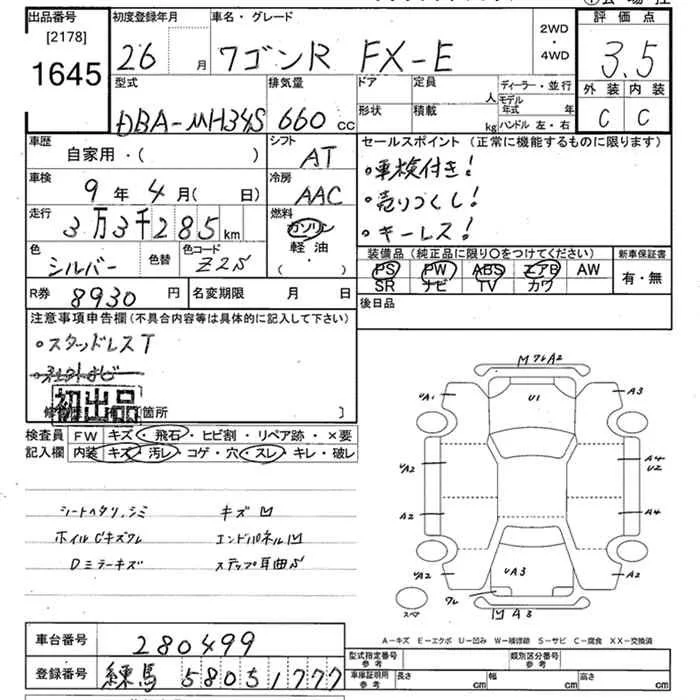 出品番号
[2178]
1645
初度登録年月
26 月
車名・グレード
ワゴンR FX-E
2WD
・
4WD
評価点
3.5
外装 内装
C C
型式
DBA-MH34S
排気量
660 cc
ドア
定員
人
形状
積載
kg
ディーラー・並行
モデル年式 年
ハンドル 左・右
車歴
自家用・( )
シフト
AT
車検
9年4月( 日)
冷房
AAC
走行
3万3千285 km
燃料
ガソリン
軽油
( ・ )
色
シルバー
色替
色コード
Z2S
R券 8930 円
名変期限 月 日
セールスポイント (正常に機能するものに限ります)
・車検付き!
・売りつくし!
・キーレス!
装備品 (純正品に限り○をつけてください)
PS PW ABS エアB AW
SR ナビ TV カワ
新車保証書
有・無
後日品
注意事項申告欄(不具合内容等は具体的に記入して下さい)
・スタッドレスT
初出品
箇所 ]
検査員 FW キズ・飛石・ヒビ割・リペア跡・×要
記入欄 内装 キズ・汚レ・コゲ・穴・スレ・キレ・破レ
シートヘタリ、シミ キズ凹
ホイルCキズクレ エンドパネル凹
Dミラーキズ ステップ耳曲り
M クレ A2
UA1 U1 A3
UA2 A4
U2
A2 A4
UA2 UA3 A2
クレ
凹 A3
スペア
A-キズ E-エクボ U-凹み W-補修跡 S-サビ C-腐食 XX-交換済
車台番号 280499
登録番号 練馬 580 う 1777
型式指定番号
参考
類別区分番号
参考
車庫証明用
参考
長さ cm
幅 cm
高さ cm